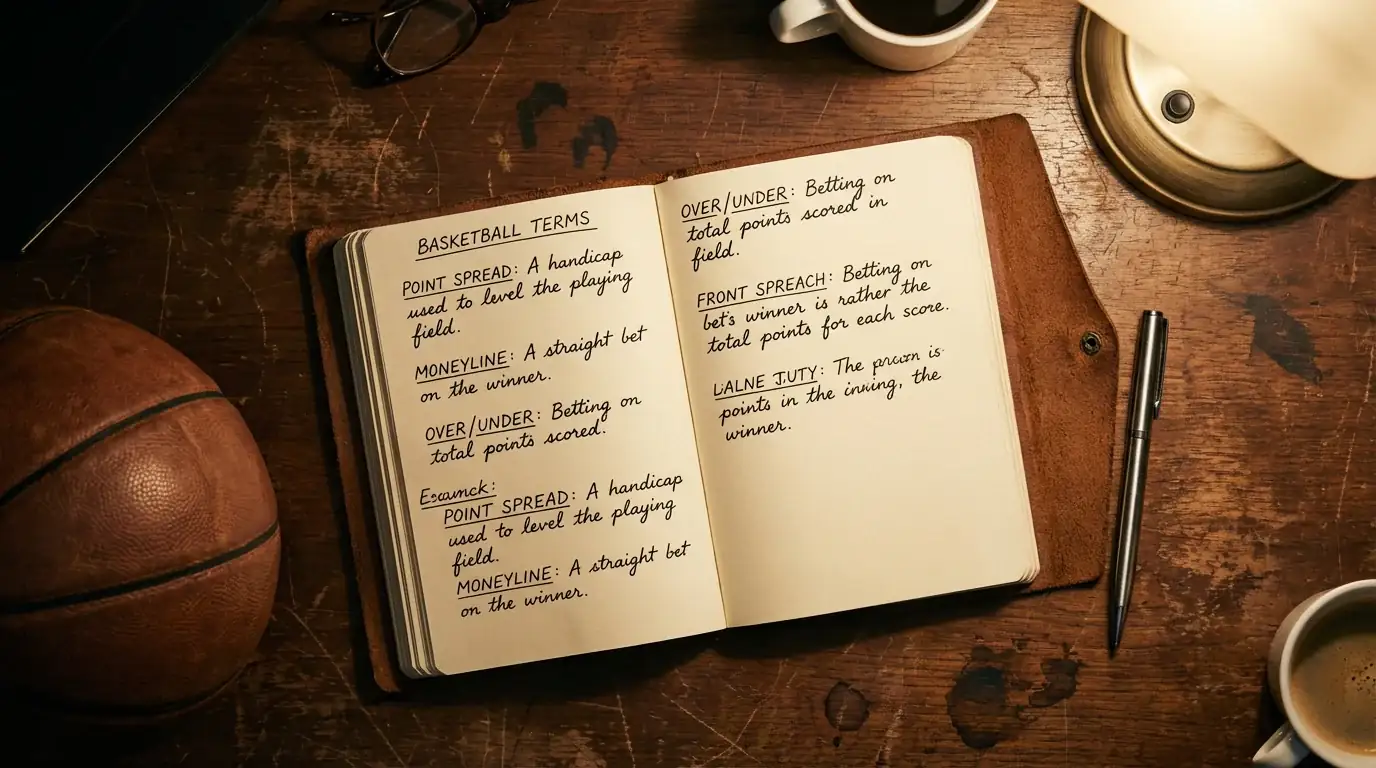 BASKETBALL TERMS
POINT SPREAD: A handicap
used to level the playing
field.
MONEYLINE: A straight bet
on the winner.
OVER/UNDER: Betting on
total points scored.
POINT SPREAD: A handicap
used to level the playing
field.
MONEYLINE: A straight bet
on the winner.
OVER/UNDER: Betting on
total points scored in
field.
FRONT SPREACH: Betting on
bet's winner is rather the
total points for each score.
The is
points in the the
winner.